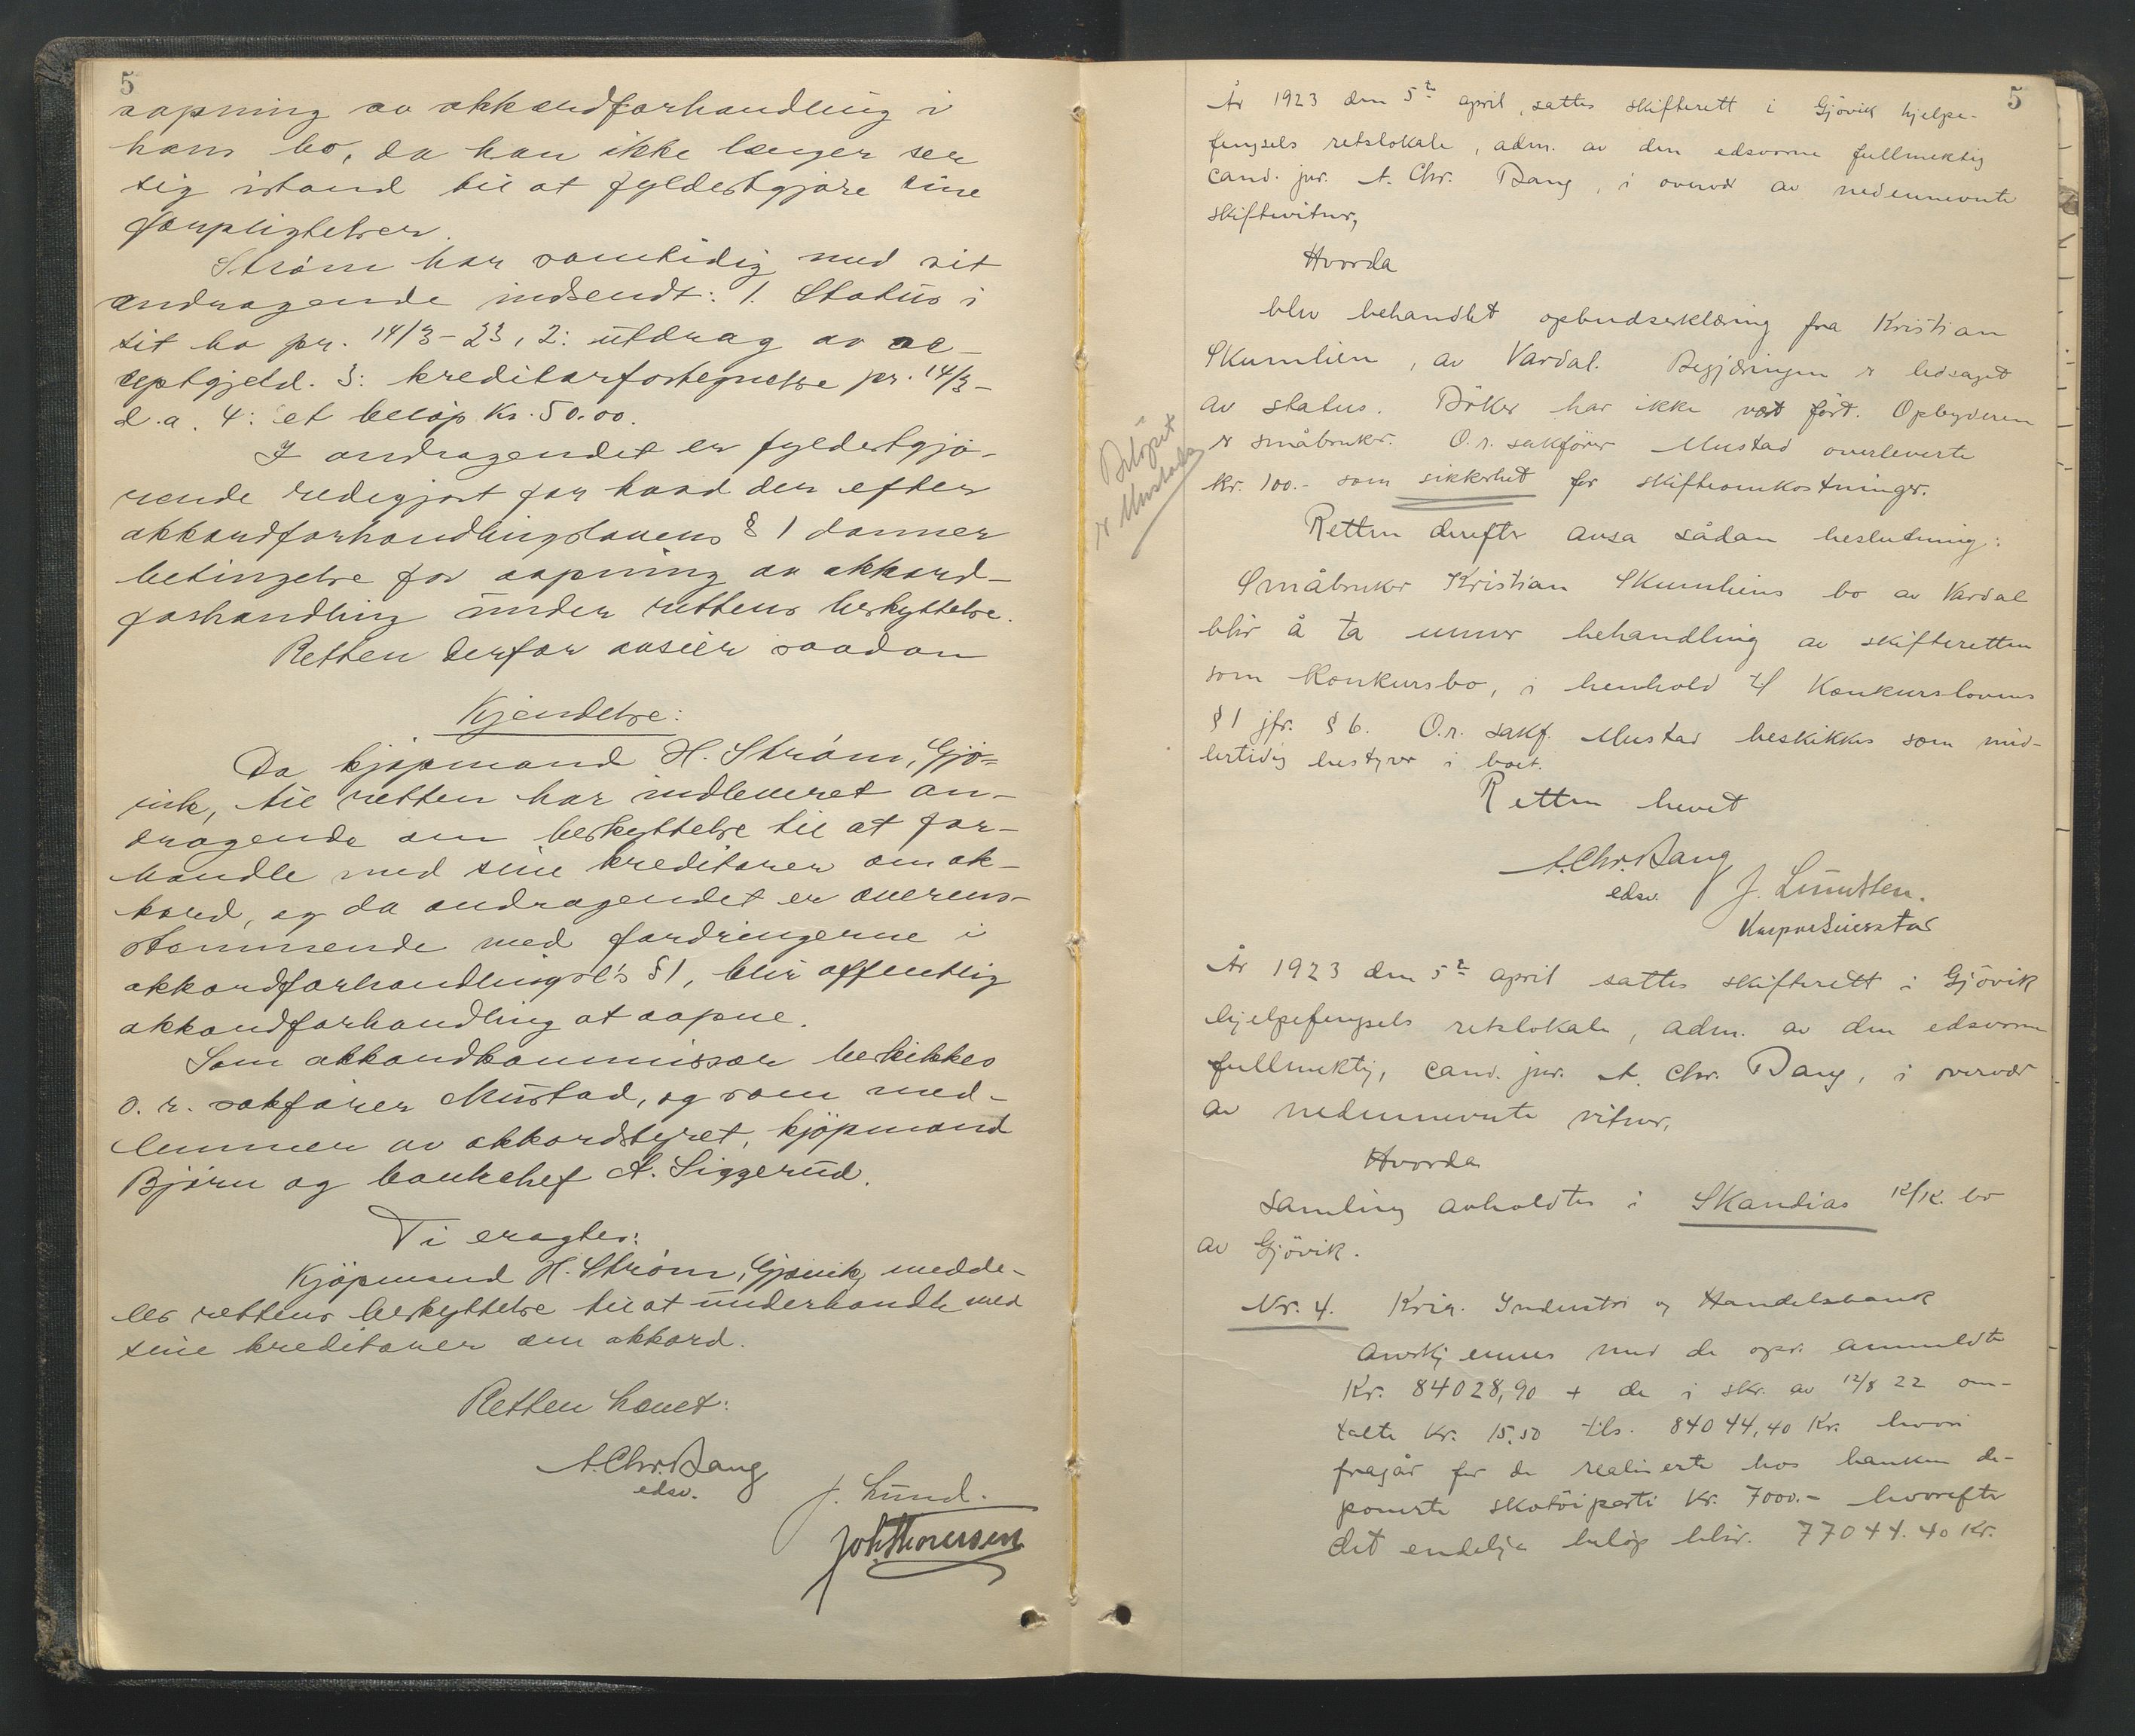 5
aapning av akkordforhandling i
hans bo, da han ikke længer ser
sig istand til at fyldestgjøre sine
forpligtelser.
Strøm har samtidig med sit
andragende indsendt: 1. Status i
sit bo pr. 14/3-23, 2: utdrag av ac-
ceptgjeld. 3: kreditorfortegnelse pr. 14/3-
d.a. 4: et beløp kr. 50.00.
I andragendet er fyldestgjø-
rende redegjort for hvad der efter
akkordforhandlingslovens § 1 danner
betingelse for aapning av akkord-
forhandling under rettens beskyttelse.
Retten derfor avsier saadan
Kjendelse:
Da kjøpmand H. Strøm, Gjø=
vik, til retten har indleveret an-
dragende om beskyttelse til at for-
handle med sine kreditorer om ak-
kord, og da andragendet er overens-
stemmende med fordringerne i
akkordforhandlingsl's §1, blir offentlig
akkordforhandling at aapne.
Som akkordkommissær beskikkes
o.r. sakfører Mustad, og som med-
lemmer av akkordstyret, kjøpmand
Bjørn og bankchef A. Siggerud.
Ti eragtes:
Kjøpmand H. Strøm, Gjøvik, medde-
les rettens beskyttelse til at underhandle med
sine kreditorer om akkord.
Retten hævet:
A.Chr.Bang
edsv.
J. Lund.
Joh. Thoresen
5
År 1923 den 5te april, sattes skifterett i Gjövik hjelpe-
fengsels retslokale, adm. av den edsvorne fullmektig
cand. jur. A. Chr. Bang, i overvær av nedennevnte
skiftevitner,
Hvorda
blev behandlet opbudserklæring fra Kristian
Skumlien, av Vardal. Begjæringen er ledsaget
av status. Böker har ikke vært fört. Opbyderen
er småbruker. O.r. sakförer Mustad overleverte
kr. 100.- som sikkerhet for skifteomkostninger.
Beløpet
er Mustads
Retten derefter avsa sådan beslutning:
Småbruker Kristian Skumliens bo av Vardal
blir å ta under behandling av skifteretten
som konkursbo, i henhold til Konkurslovens
§ 1 jfr. § 6. O.r. sakf. Mustad beskikkes som mid-
lertidig bestyrer i boet.
Retten hevet
A.Chr.Bang
edsv.
J. Lundsten.
År 1923 den 5te april sattes skifterett i Gjövik
hjelpefengsels retslokale, adm. av den edsvorne
fullmektig, cand. jur. A. Chr. Bang, i overvær
av nedennevnte vitner,
Hvorda
Samling avholdtes i Skandias bo
av Gjövik.
Nr. 4. Kria. Industri og Handelsbank
anerkjennes med de opr. anmeldte
Kr. 84028,90 + de i skr. av 12/8 22 om-
talte kr. 15,50 tils. 84044,40 Kr. hvori
fragår for de realiserte hos banken de-
ponerte skotöiparti Kr. 7000.- hvorefter
det endelige belöp blir. 77044.40 Kr.